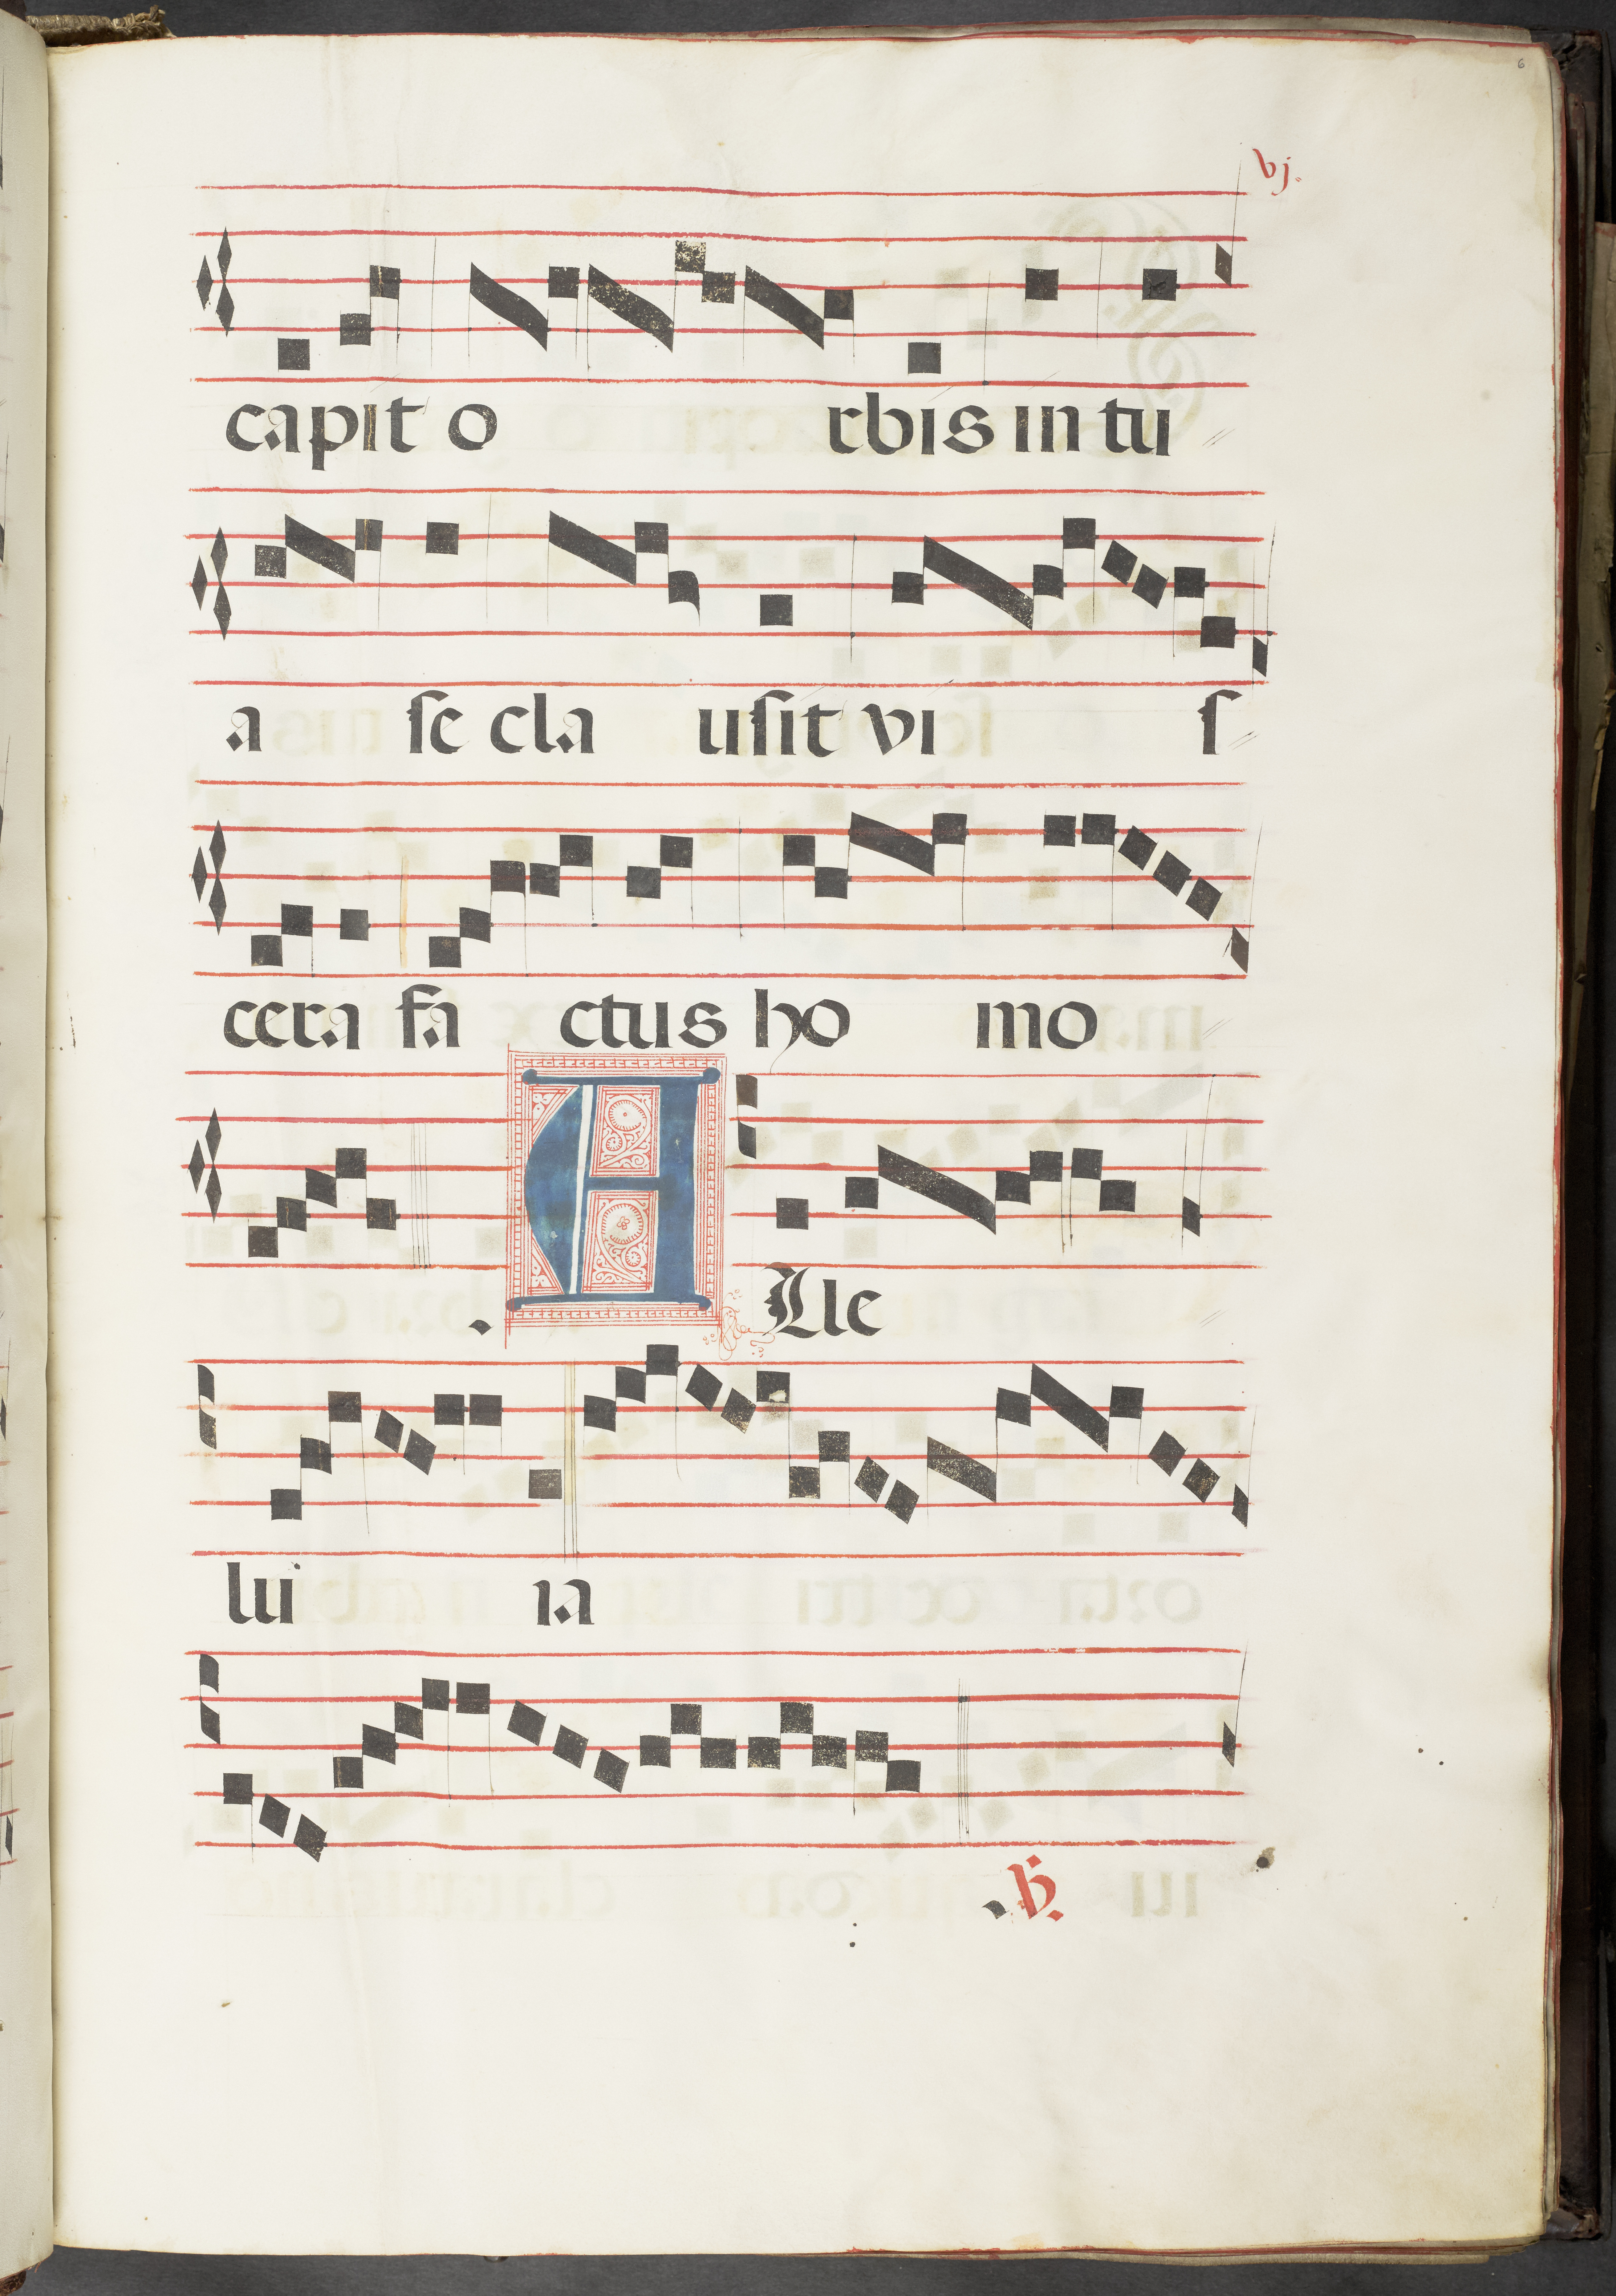 6
vj.
capit o rbis in tu
a se cla usit vi s
cera fa ctus ho mo
. A Lle
lu ia
℣.